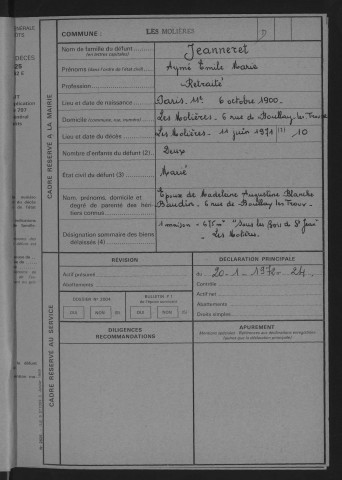 COMMUNE : LES MOLIÈRES
Nom de famille du défunt
(en lettres capitales) Jeanneret
Prénoms (dans l'ordre de l'état civil) Aymé Emile Marie
Profession Retraité
Lieu et date de naissance Paris 11e 6 octobre 1900.
Domicile (commune, rue, numéro) Les Molières. 6 rue de Boullay les Troux
Lieu et date du décès Les Molières. 11 juin 1971 (1) 10
Nombre d'enfants du défunt (2) Deux
État civil du défunt (3) Marié
Nom, prénoms, domicile et
degré de parenté des héritiers connus Epoux de Madeleine Augustine Blanche
Baudin. 6 rue de Boullay les Troux.
Désignation sommaire des biens
délaissés (4) 1 maison - 675 m² "Sous les
Les Molières.
CADRE RÉSERVÉ A LA MAIRIE
RÉVISION
DÉCLARATION PRINCIPALE
Actif présumé
Abattements
du 20-1-1972 - 24
Contrôle
Actif net
Abattements
Droits simples
DOSSIER N° 2804
BULLETIN P.1
OUI NON EN OUI NON EN
DILIGENCES
RECOMMANDATIONS
APUREMENT
CADRE RÉSERVÉ AU SERVICE